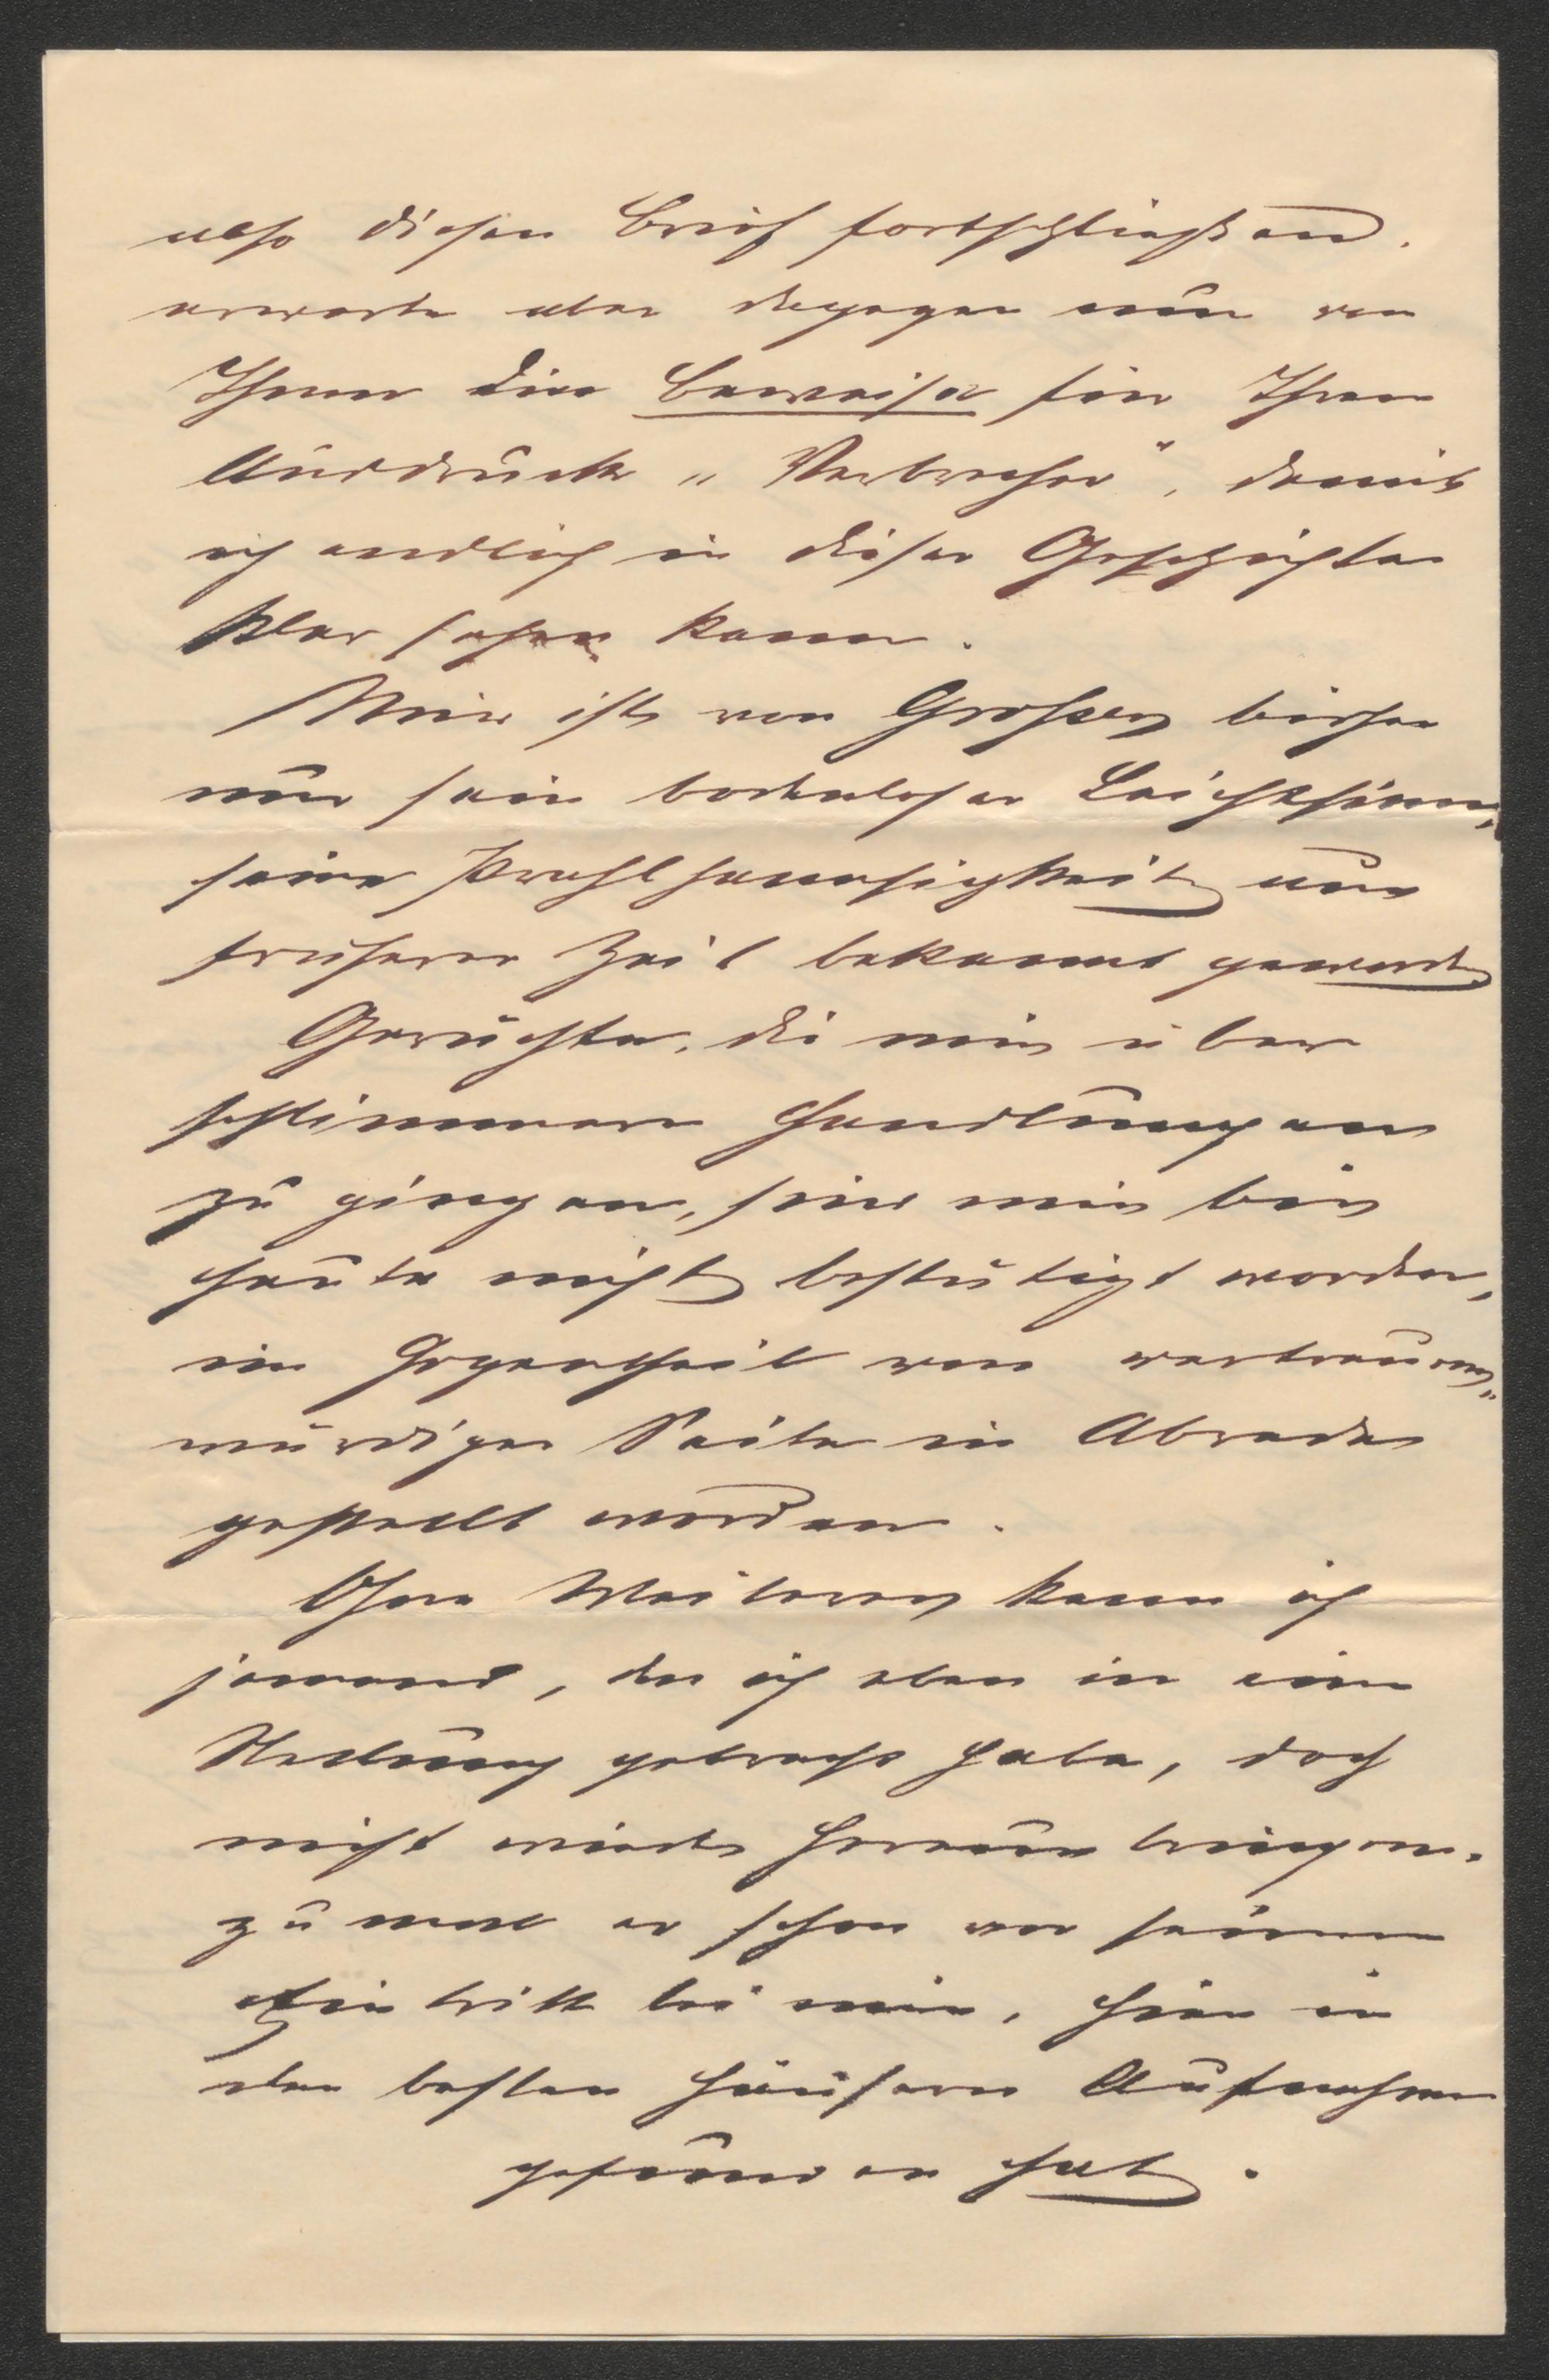 also diesen Brief fortschließend,
erwarte aber dagegen nun von
Ihnen die Beweise für Ihren
Ausdruck „Verbrecher", damit
ich endlich in dieser Geschichte
klar sehen kann.
Mir ist von Grossen bisher
nur sein bodenloser Leichtsinn,
seine Prahlhansigkeit aus
früherer Zeit bekannt geworden
Gerüchte, die mir über
schlimmere Handlungen
zu gingen, sind mir bis
heute nicht bestätigt worden,
im Gegentheil von vertrauens„
würdiger Seite in Abrede
gestellt worden.
Ohne Weiteres kann ich
jemand, den ich eben in eine
Stellung gebracht habe, doch
nicht wieder heraus bringen,
zumal er schon vor seinem
Eintritt bei mir, hier in
den besten Häusern Aufnahme
gefunden hat.